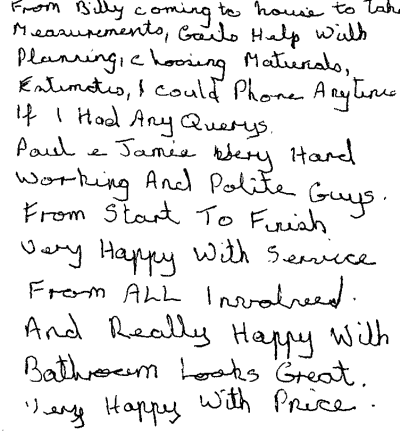 From Billy coming to house to take
Measurements, Gails Help With
Planning, choosing Materials,
Estimates, I could Phone Anytime
If I Had Any Querys.
Paul & Jamie Very Hard
Working And Polite Guys.
From Start To Finish
Very Happy With Service
From ALL Involved.
And Really Happy With
Bathroom Looks Great.
Very Happy With Price.